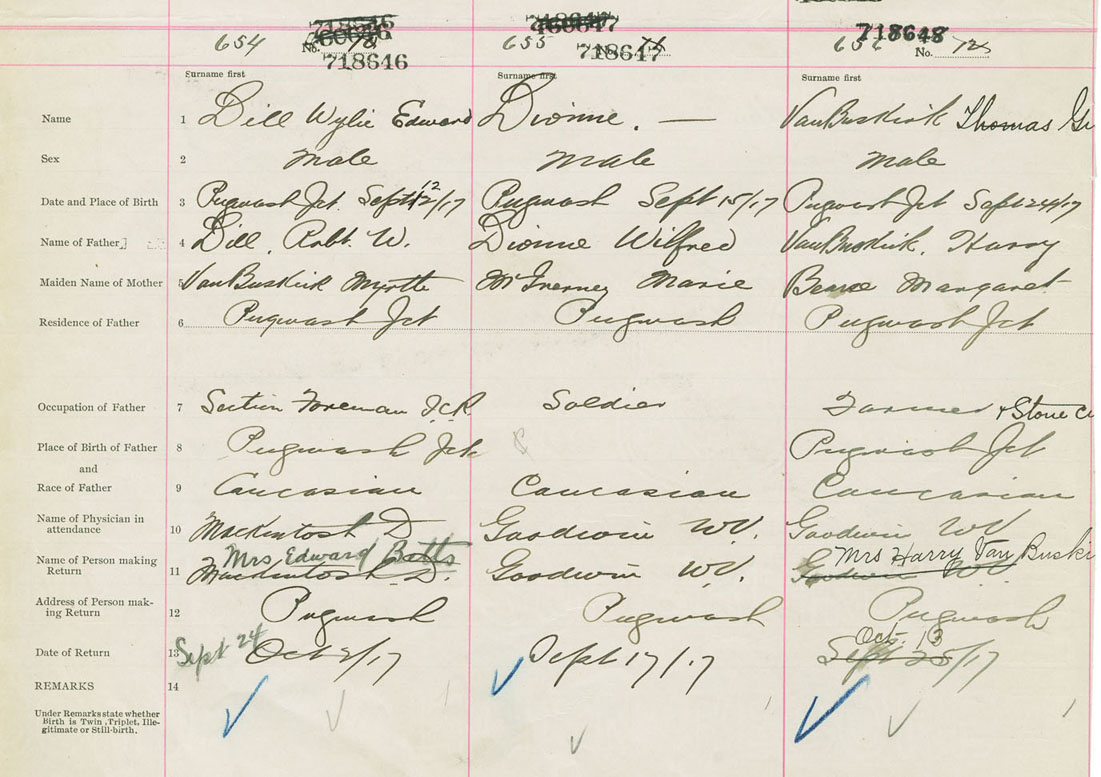 718646 718647
654 No. 78 655 No. 656 718648
718646 718647 No. 72
Surname first Surname first Surname first
Name 1 Dill Wylie Edward Dionne. — VanBuskirk Thomas
Sex 2 Male Male Male
Date and Place of Birth 3 Pugwash Jct. Sept 12/17 Pugwash Sept 15/17 Pugwash Jct Sept 24/17
Name of Father 4 Dill, Robt. W. Dionne Wilfred VanBuskirk, Harry
Maiden Name of Mother 5 VanBuskirk Myrtle Marie Margaret
Residence of Father 6 Pugwash Jct Pugwash Pugwash Jct
Occupation of Father 7 Section Foreman I.C.R. Soldier Farmer & Stone
Place of Birth of Father 8 Pugwash Jct. Pugwash Jct
and
Race of Father 9 Caucasian Caucasian Caucasian
Name of Physician in
attendance 10 Mackintosh D Goodwin W.V. Goodwin W.V.
Name of Person making Mrs. Edward Betts Mrs Harry Van Buski
Return 11 Mackintosh D. Goodwin W.V. Goodwin W.V.
Address of Person mak-
ing Return 12 Pugwash Pugwash Pugwash
Sept 24 Oct. 13
Date of Return 13 Oct 2/17 Sept 17/17 Sept 25/17
REMARKS 14
Under Remarks state whether
Birth is Twin, Triplet, Ille-
gitimate or Still-birth.